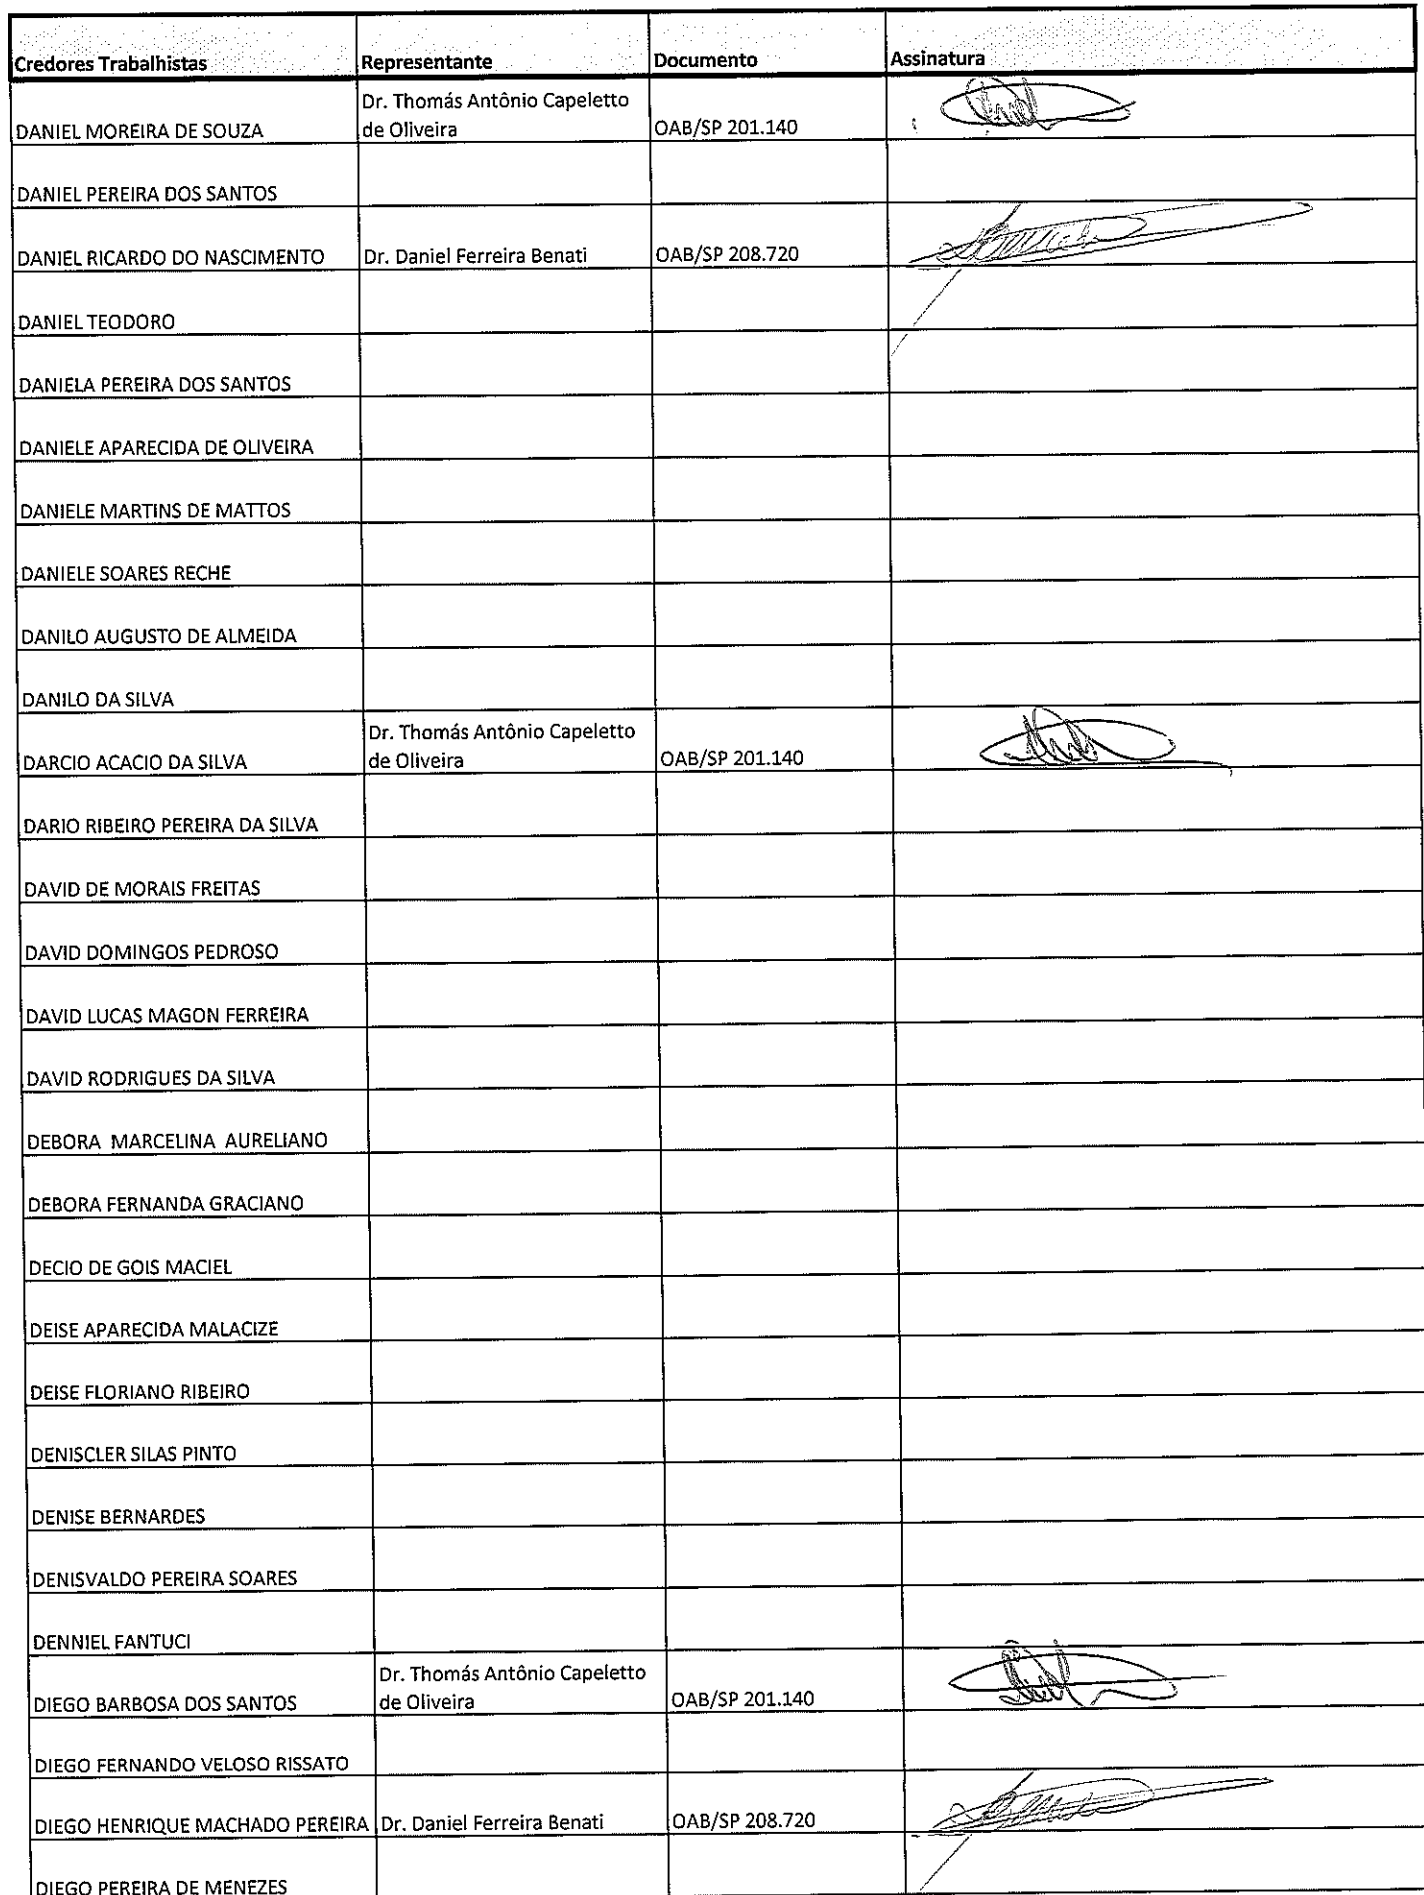 Credores Trabalhistas Representante Documento Assinatura
Dr. Thomás Antônio Capeletto
DANIEL MOREIRA DE SOUZA de Oliveira OAB/SP 201.140
DANIEL PEREIRA DOS SANTOS
DANIEL RICARDO DO NASCIMENTO Dr. Daniel Ferreira Benati OAB/SP 208.720
DANIEL TEODORO
DANIELA PEREIRA DOS SANTOS
DANIELE APARECIDA DE OLIVEIRA
DANIELE MARTINS DE MATTOS
DANIELE SOARES RECHE
DANILO AUGUSTO DE ALMEIDA
DANILO DA SILVA
Dr. Thomás Antônio Capeletto
DARCIO ACACIO DA SILVA de Oliveira OAB/SP 201.140
DARIO RIBEIRO PEREIRA DA SILVA
DAVID DE MORAIS FREITAS
DAVID DOMINGOS PEDROSO
DAVID LUCAS MAGON FERREIRA
DAVID RODRIGUES DA SILVA
DEBORA MARCELINA AURELIANO
DEBORA FERNANDA GRACIANO
DECIO DE GOIS MACIEL
DEISE APARECIDA MALACIZE
DEISE FLORIANO RIBEIRO
DENISCLER SILAS PINTO
DENISE BERNARDES
DENISVALDO PEREIRA SOARES
DENNIEL FANTUCI
Dr. Thomás Antônio Capeletto
DIEGO BARBOSA DOS SANTOS de Oliveira OAB/SP 201.140
DIEGO FERNANDO VELOSO RISSATO
DIEGO HENRIQUE MACHADO PEREIRA Dr. Daniel Ferreira Benati OAB/SP 208.720
DIEGO PEREIRA DE MENEZES